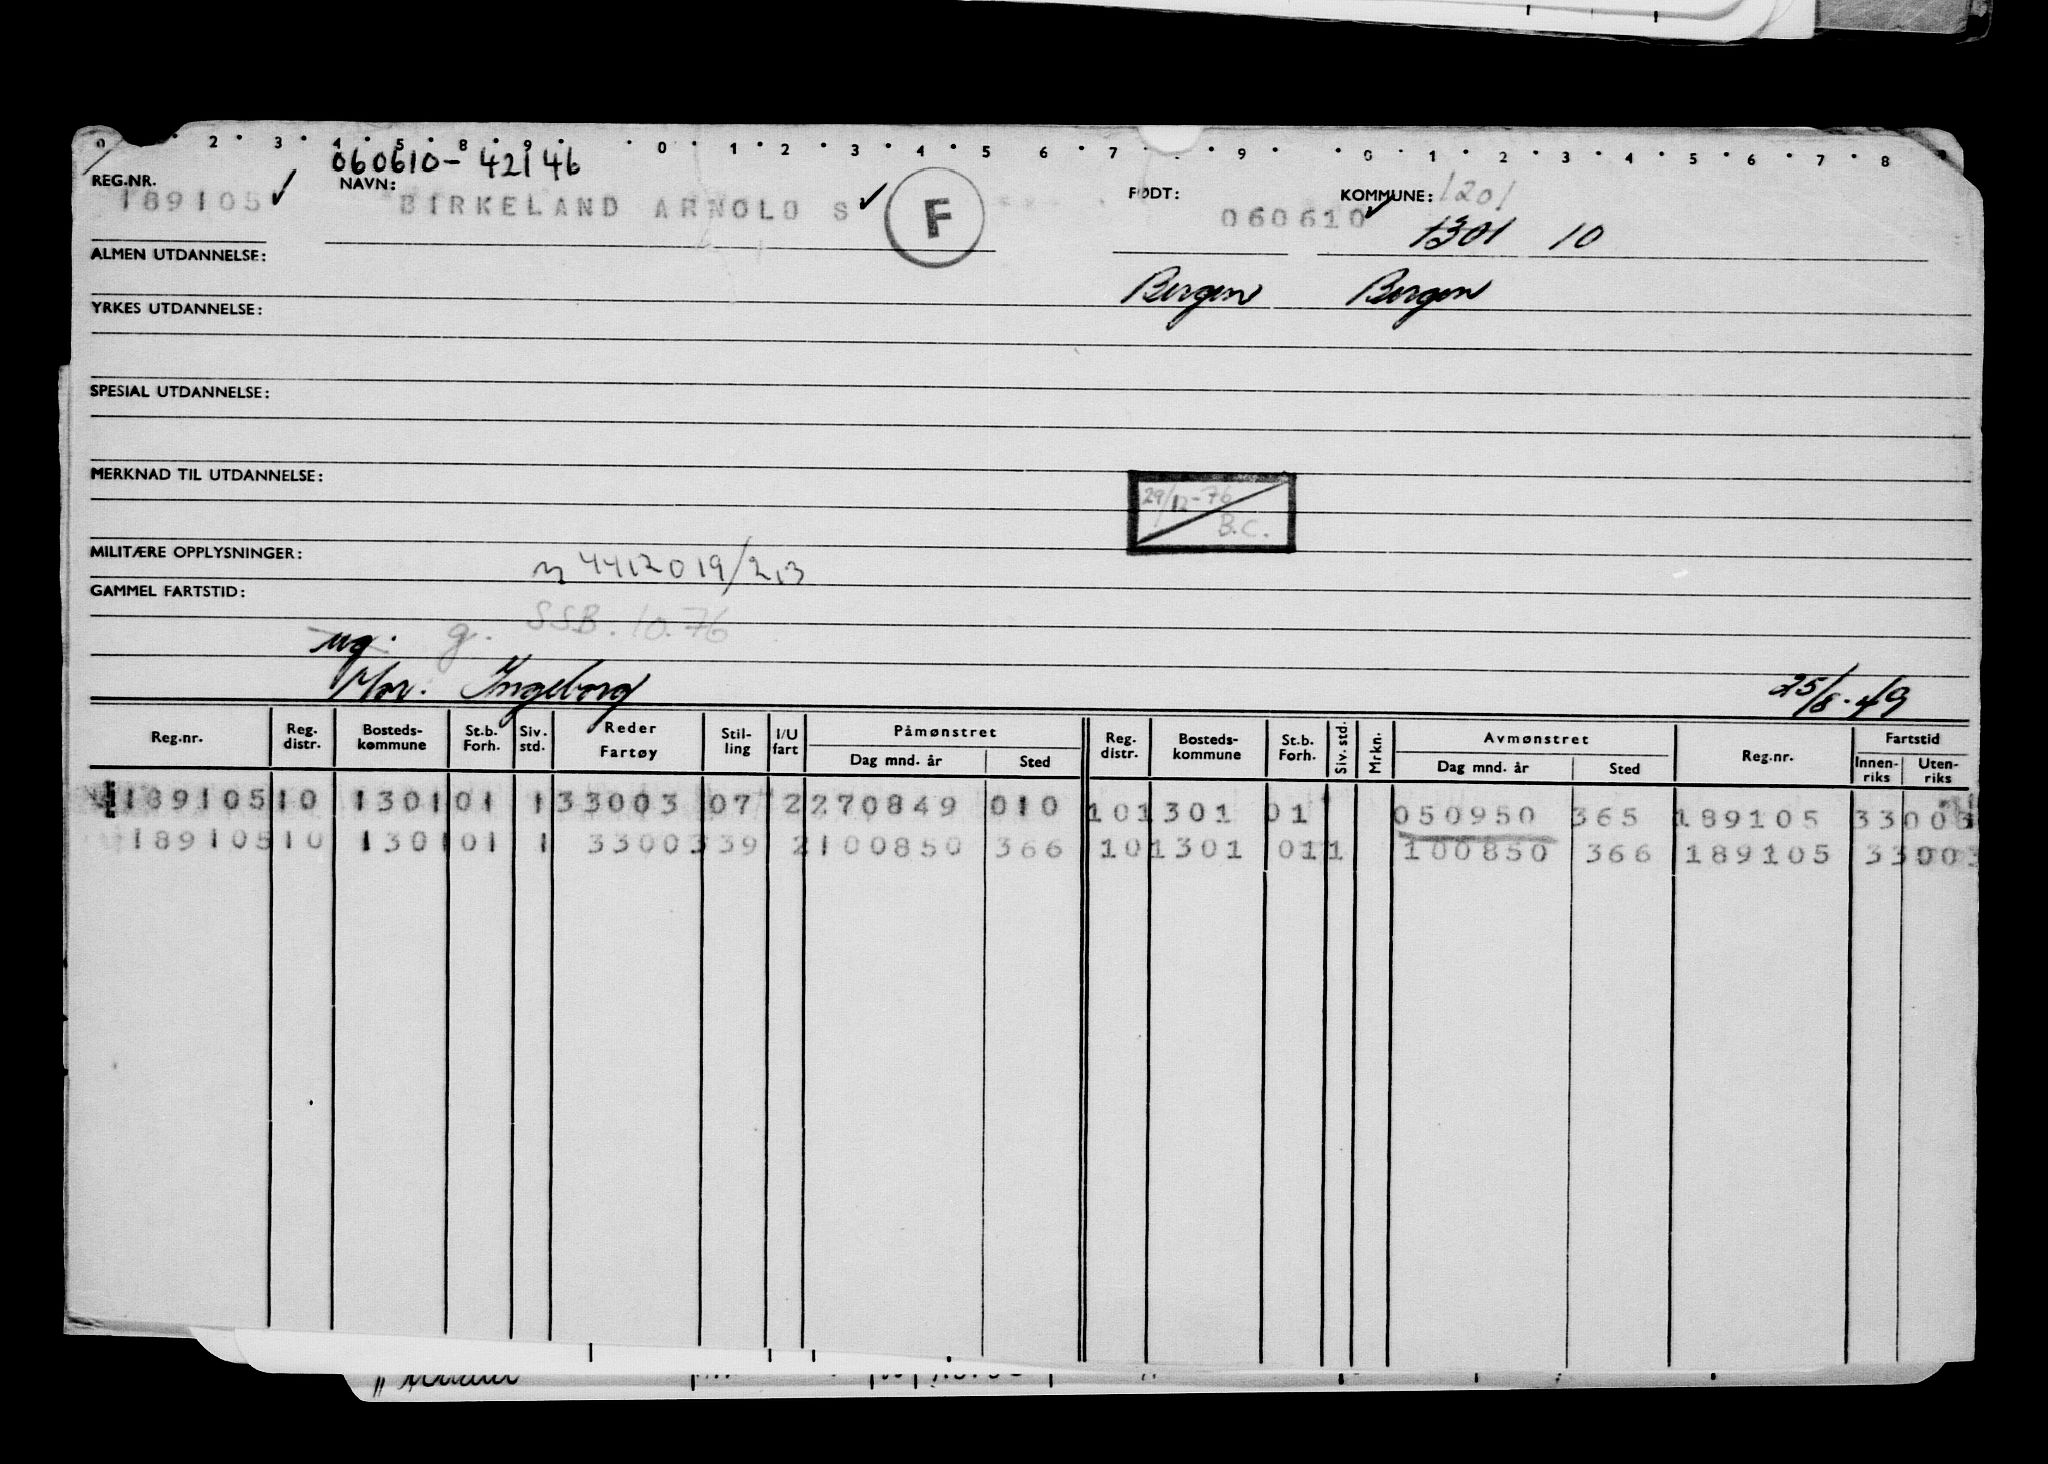 0 2 3 4 5 8 9 0 1 2 3 4 5 6 7 9 0 1 2 3 4 5 6 7 8
060610-42146
REG.NR. NAVN: FØDT: KOMMUNE: 1201
189105 BIRKELAND ARNOLD S F 060610 1301 10
ALMEN UTDANNELSE:
Bergen Bergen
YRKES UTDANNELSE:
SPESIAL UTDANNELSE:
MERKNAD TIL UTDANNELSE:
29/12-76
B.C.
MILITÆRE OPPLYSNINGER:
4412019/213
GAMMEL FARTSTID:
SSB. 10.76
ug. g.
Mor. Ingeborg 25/8-49
Reg.nr. Reg. distr. Bosteds-kommune St.b. Forh. Siv. std. Reder Fartøy Stil-ling I/U fart Påmønstret Dag mnd. år Sted Reg. distr. Bosteds-kommune St.b. Forh. Siv. std. Mrkn. Avmønstret Dag mnd. år Sted Reg.nr. Fartstid Innen-riks Uten-riks
189105 10 1301 01 1 33003 07 2 270849 010 10 1301 01 050950 365 189105 33003
189105 10 1301 01 1 33003 39 2 100850 366 10 1301 01 1 100850 366 189105 33003